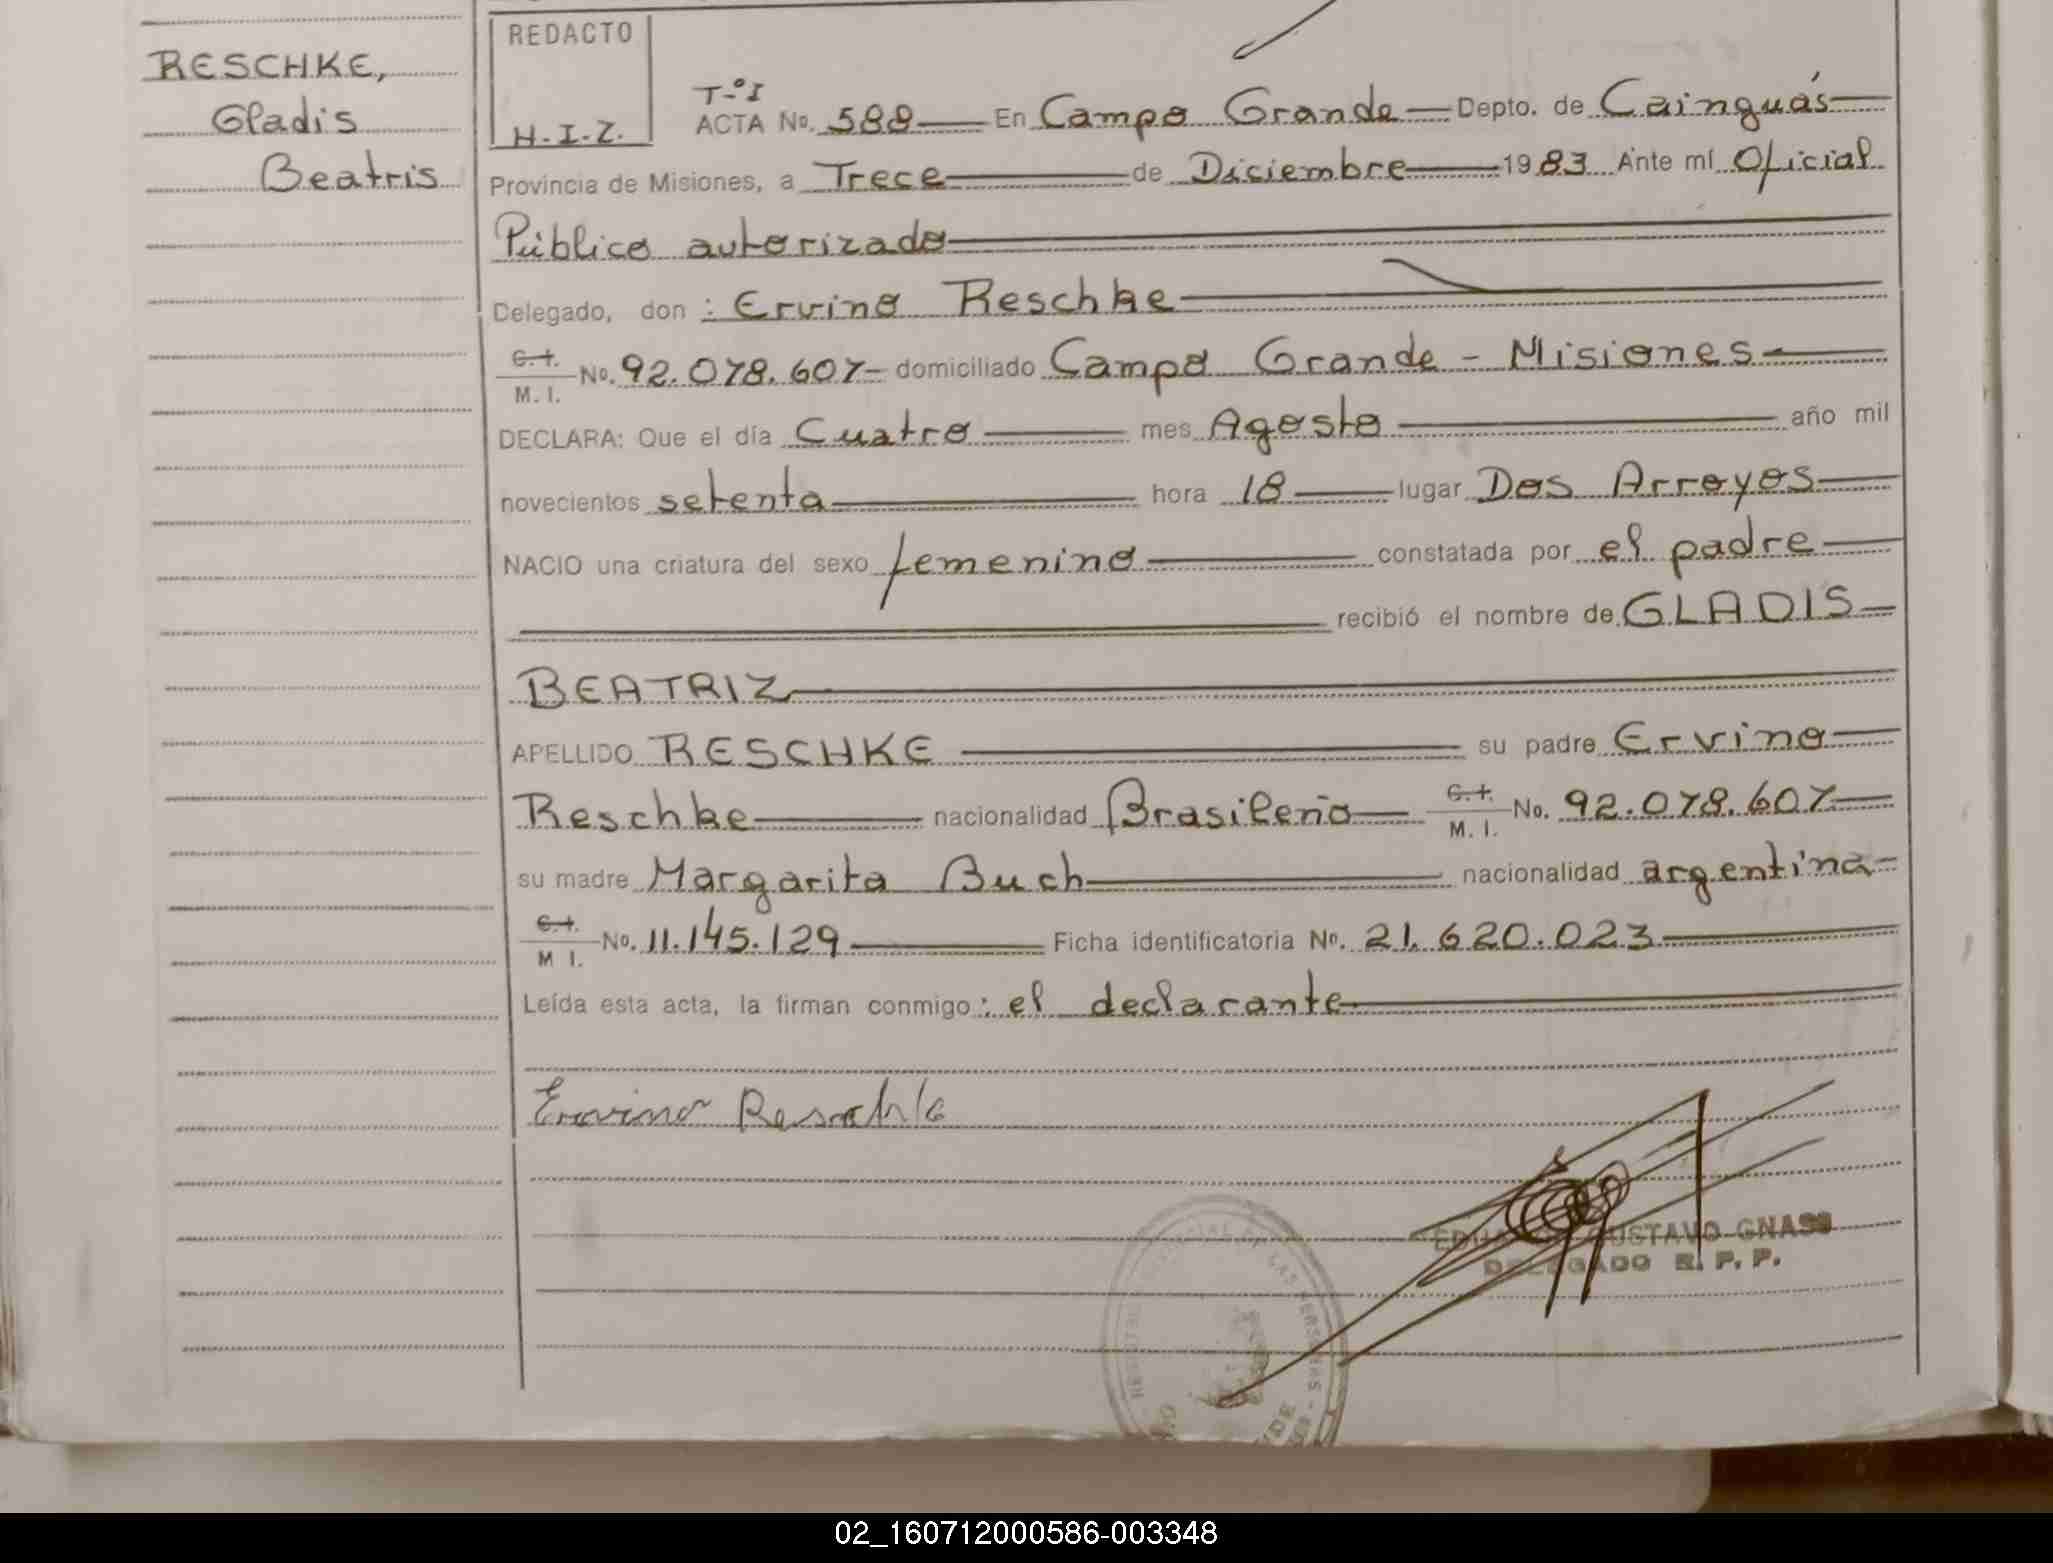 RESCHKE,
Gladis
Beatris
REDACTO
H.I.Z.
T-º I
ACTA No. 588 En Campo Grande Depto. de Cainguás
Provincia de Misiones, a Trece de Diciembre 1983 Ante mí Oficial
Público autorizado
Delegado, don : Ervino Reschke
C.I. M. I. No. 92.078.607 domiciliado Campo Grande - Misiones
DECLARA: Que el día Cuatro mes Agosto año mil
novecientos setenta hora 18 lugar Dos Arroyos
NACIO una criatura del sexo femenino constatada por el padre
recibió el nombre de GLADIS
BEATRIZ
APELLIDO RESCHKE su padre Ervino
Reschke nacionalidad Brasileño C.I. M. I. No. 92.078.607
su madre Margarita Buch nacionalidad argentina
C.I. M I. No. 11.145.129 Ficha identificatoria No. 21.620.023
Leída esta acta, la firman conmigo : el declarante
Ervino Reschke
EDUARDO GUSTAVO GNASS
DELEGADO R. P. P.
DE LAS PERSONAS
02_160712000586-003348